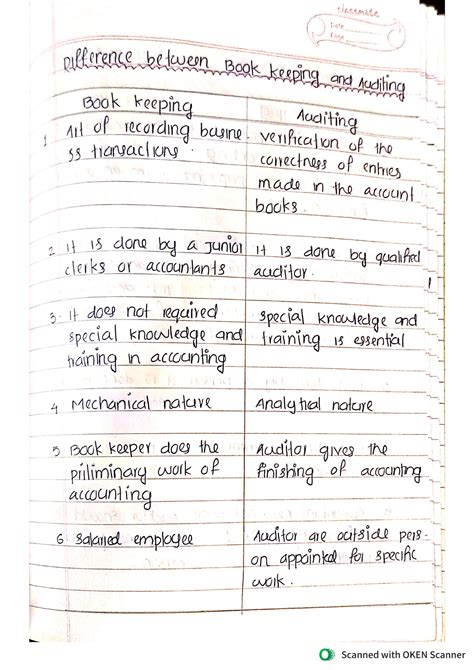 classmate
Date
Page
Difference between Book keeping and Auditing
Book keeping
Auditing
1 Art of recording busine
ss transactions.
verification of the
correctness of entries
made in the account
books.
2 It is done by a junior
clerks or accountants
It is done by qualified
auditor.
3. It does not required
special knowledge and
training in accounting
special knowledge and
training is essential
4 Mechanical nature
Analytical nature
5 Book keeper does the
priliminary work of
accounting
Auditor gives the
finishing of accounting
6 Salaried employee
Auditor are outside pers-
on appointed for specific
work.
Scanned with OKEN Scanner